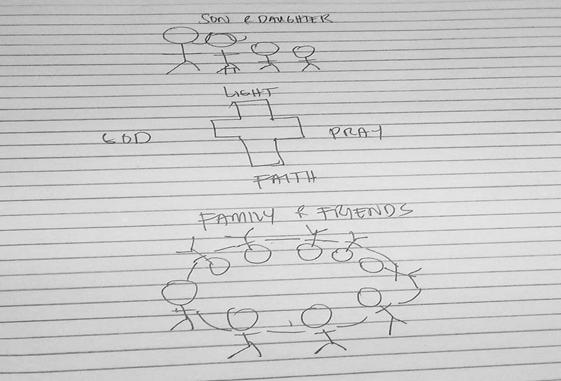 SON & DAUGHTER
LIGHT
GOD
PRAY
FAITH
FAMILY & FRIENDS